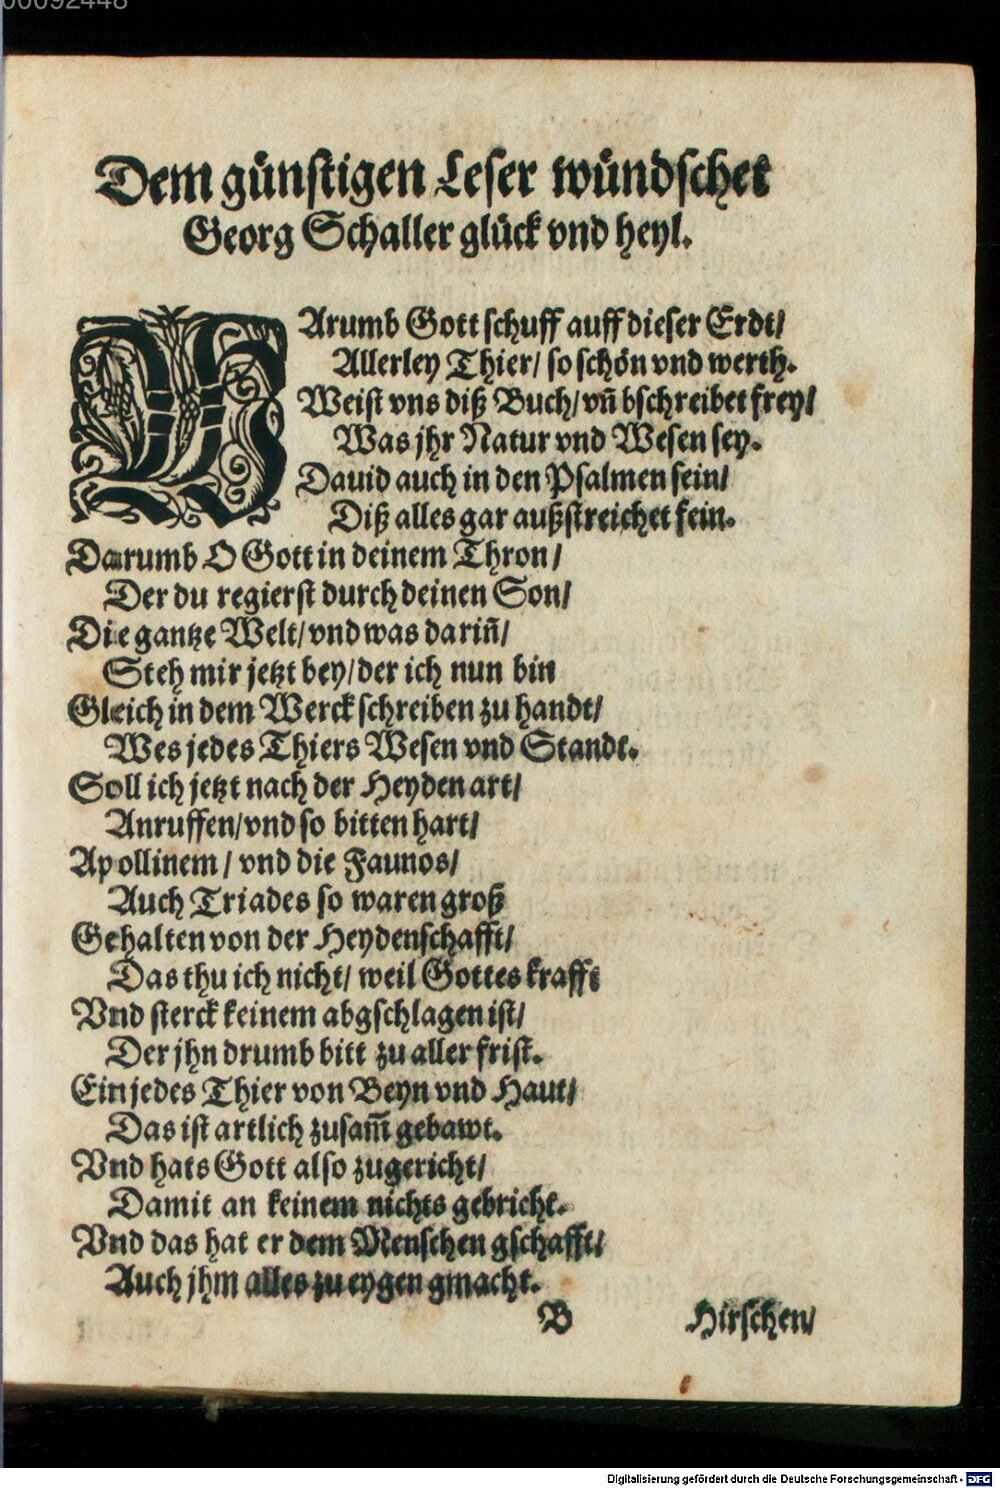 00092448
Dem günstigen Leser wündschet
Georg Schaller glück vnd heyl.
WArumb Gott schuff auff dieser Erdt/
Allerley Thier/ so schön vnd werth.
Weist vns diß Buch/ vñ bschreibet frey/
Was jhr Natur vnd Wesen sey.
Dauid auch in den Psalmen sein/
Diß alles gar außstreichet fein.
Darumb O Gott in deinem Thron/
Der du regierst durch deinen Son/
Die gantze Welt/ vnd was dariñ/
Steh mir jetzt bey/ der ich nun bin
Gleich in dem Werck schreiben zu handt/
Wes jedes Thiers Wesen vnd Standt.
Soll ich jetzt nach der Heyden art/
Anruffen/ vnd so bitten hart/
Apollinem/ vnd die Faunos/
Auch Triades so waren groß
Gehalten von der Heydenschafft/
Das thu ich nicht/ weil Gottes krafft
Vnd sterck keinem abgschlagen ist/
Der jhn drumb bitt zu aller frist.
Ein jedes Thier von Beyn vnd Haut/
Das ist artlich zusam̃ gebawt.
Vnd hats Gott also zugericht/
Damit an keinem nichts gebricht.
Vnd das hat er dem Menschen gschafft/
Auch jhm alles zu eygen gmacht.
B Hirschen/
Digitalisierung gefördert durch die Deutsche Forschungsgemeinschaft - DFG